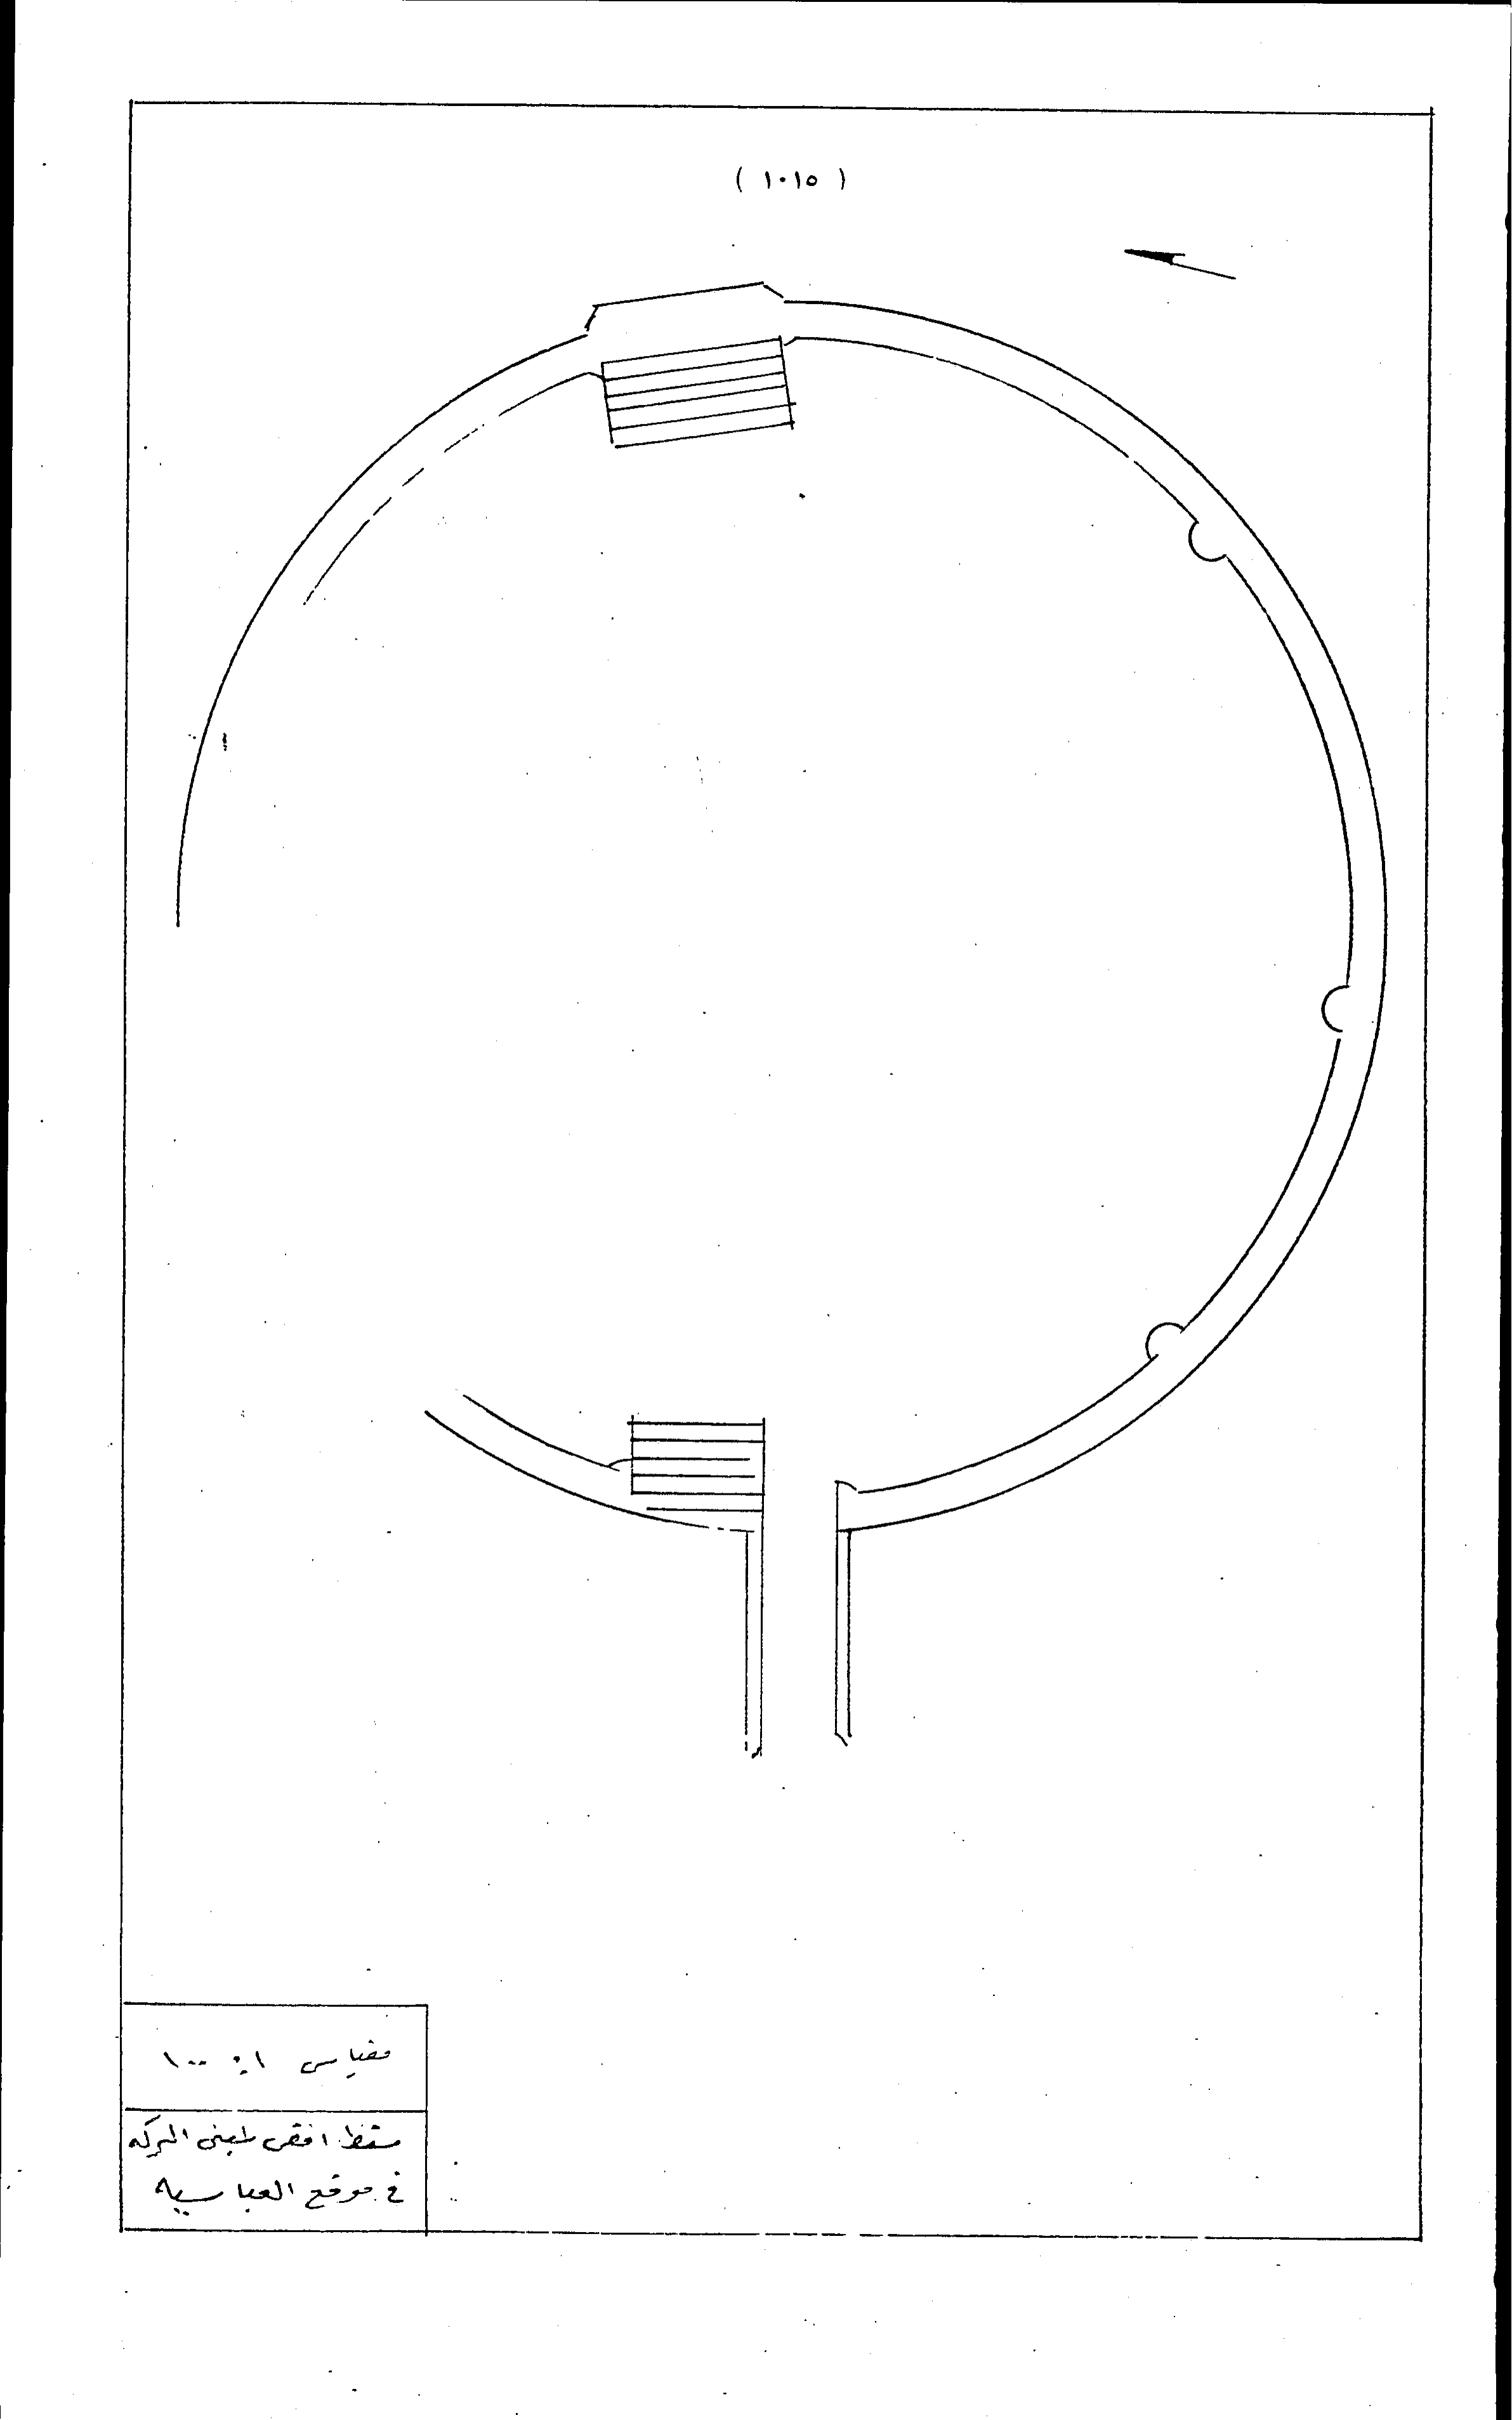 ( ١٠١٥ )
مقياس ١ : ١٠٠
مسقط افقي لمبنى البركه
في موقع العباسيه